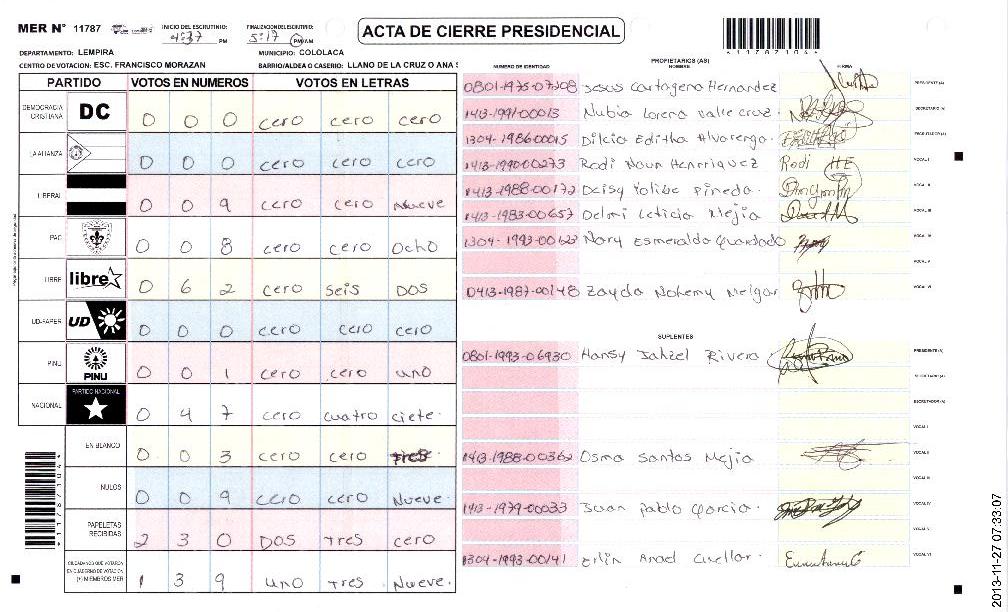 MER N° 11787
INICIO DEL ESCRUTINIO: 4:37 PM
FINALIZACION DEL ESCRUTINIO: 5:17 PM/AM
ACTA DE CIERRE PRESIDENCIAL
1178704
DEPARTAMENTO: LEMPIRA
MUNICIPIO: COLOLACA
CENTRO DE VOTACION: ESC. FRANCISCO MORAZAN
BARRIO/ALDEA O CASERIO: LLANO DE LA CRUZ O ANA S
PARTIDO VOTOS EN NUMEROS VOTOS EN LETRAS
DEMOCRACIA CRISTIANA DC 0 0 0 cero cero cero
LA ALIANZA 0 0 0 cero cero cero
LIBERAL 0 0 9 cero cero Nueve
PAC 0 0 8 cero cero Ocho
LIBRE libre 0 6 2 cero seis DOS
UD-FAPER UD 0 0 0 cero cero cero
PINU PINU 0 0 1 cero cero uno
NACIONAL PARTIDO NACIONAL 0 4 7 cero cuatro ciete.
EN BLANCO 0 0 3 cero cero tres
NULOS 0 0 9 cero cero Nueve.
PAPELETAS RECIBIDAS 2 3 0 DOS tres cero
CIUDADANOS QUE VOTARON EN CUADERNO DE VOTACION (+) MIEMBROS MER 1 3 9 uno tres Nueve.
1178704
PROPIETARIOS (AS)
NUMERO DE IDENTIDAD NOMBRE FIRMA
0801-1975-07208 Jesus Cartagena Hernandez PRESIDENTE (A)
1413-1991-00013 Nubia Lorena valle cruz. SECRETARIO (A)
1304-1986-00015 Dilcia Editha Alvarenga. ESCRUTADOR (A)
1413-1990-00273 Rodi Noun Henrriquez Rodi HE VOCAL I
1413-1988-00172 Deisy Yolibe Pineda. VOCAL II
1413-1983-00657 Delmi Leticia Mejia VOCAL III
1304-1993-00622 Nory Esmeralda Quardado VOCAL IV
VOCAL V
0413-1987-00148 Zayda Nohemy Melgar VOCAL VI
SUPLENTES
0801-1993-06930 Hansy Jahzel Rivera PRESIDENTE (A)
SECRETARIO (A)
ESCRUTADOR (A)
VOCAL I
1413-1988-00362 Osma Santos Mejia VOCAL II
VOCAL III
1413-1979-00033 Juan Pablo Garcia. VOCAL IV
VOCAL V
1304-1993-00141 Erlin Anad Cuellar. VOCAL VI
2013-11-27 07:33:07